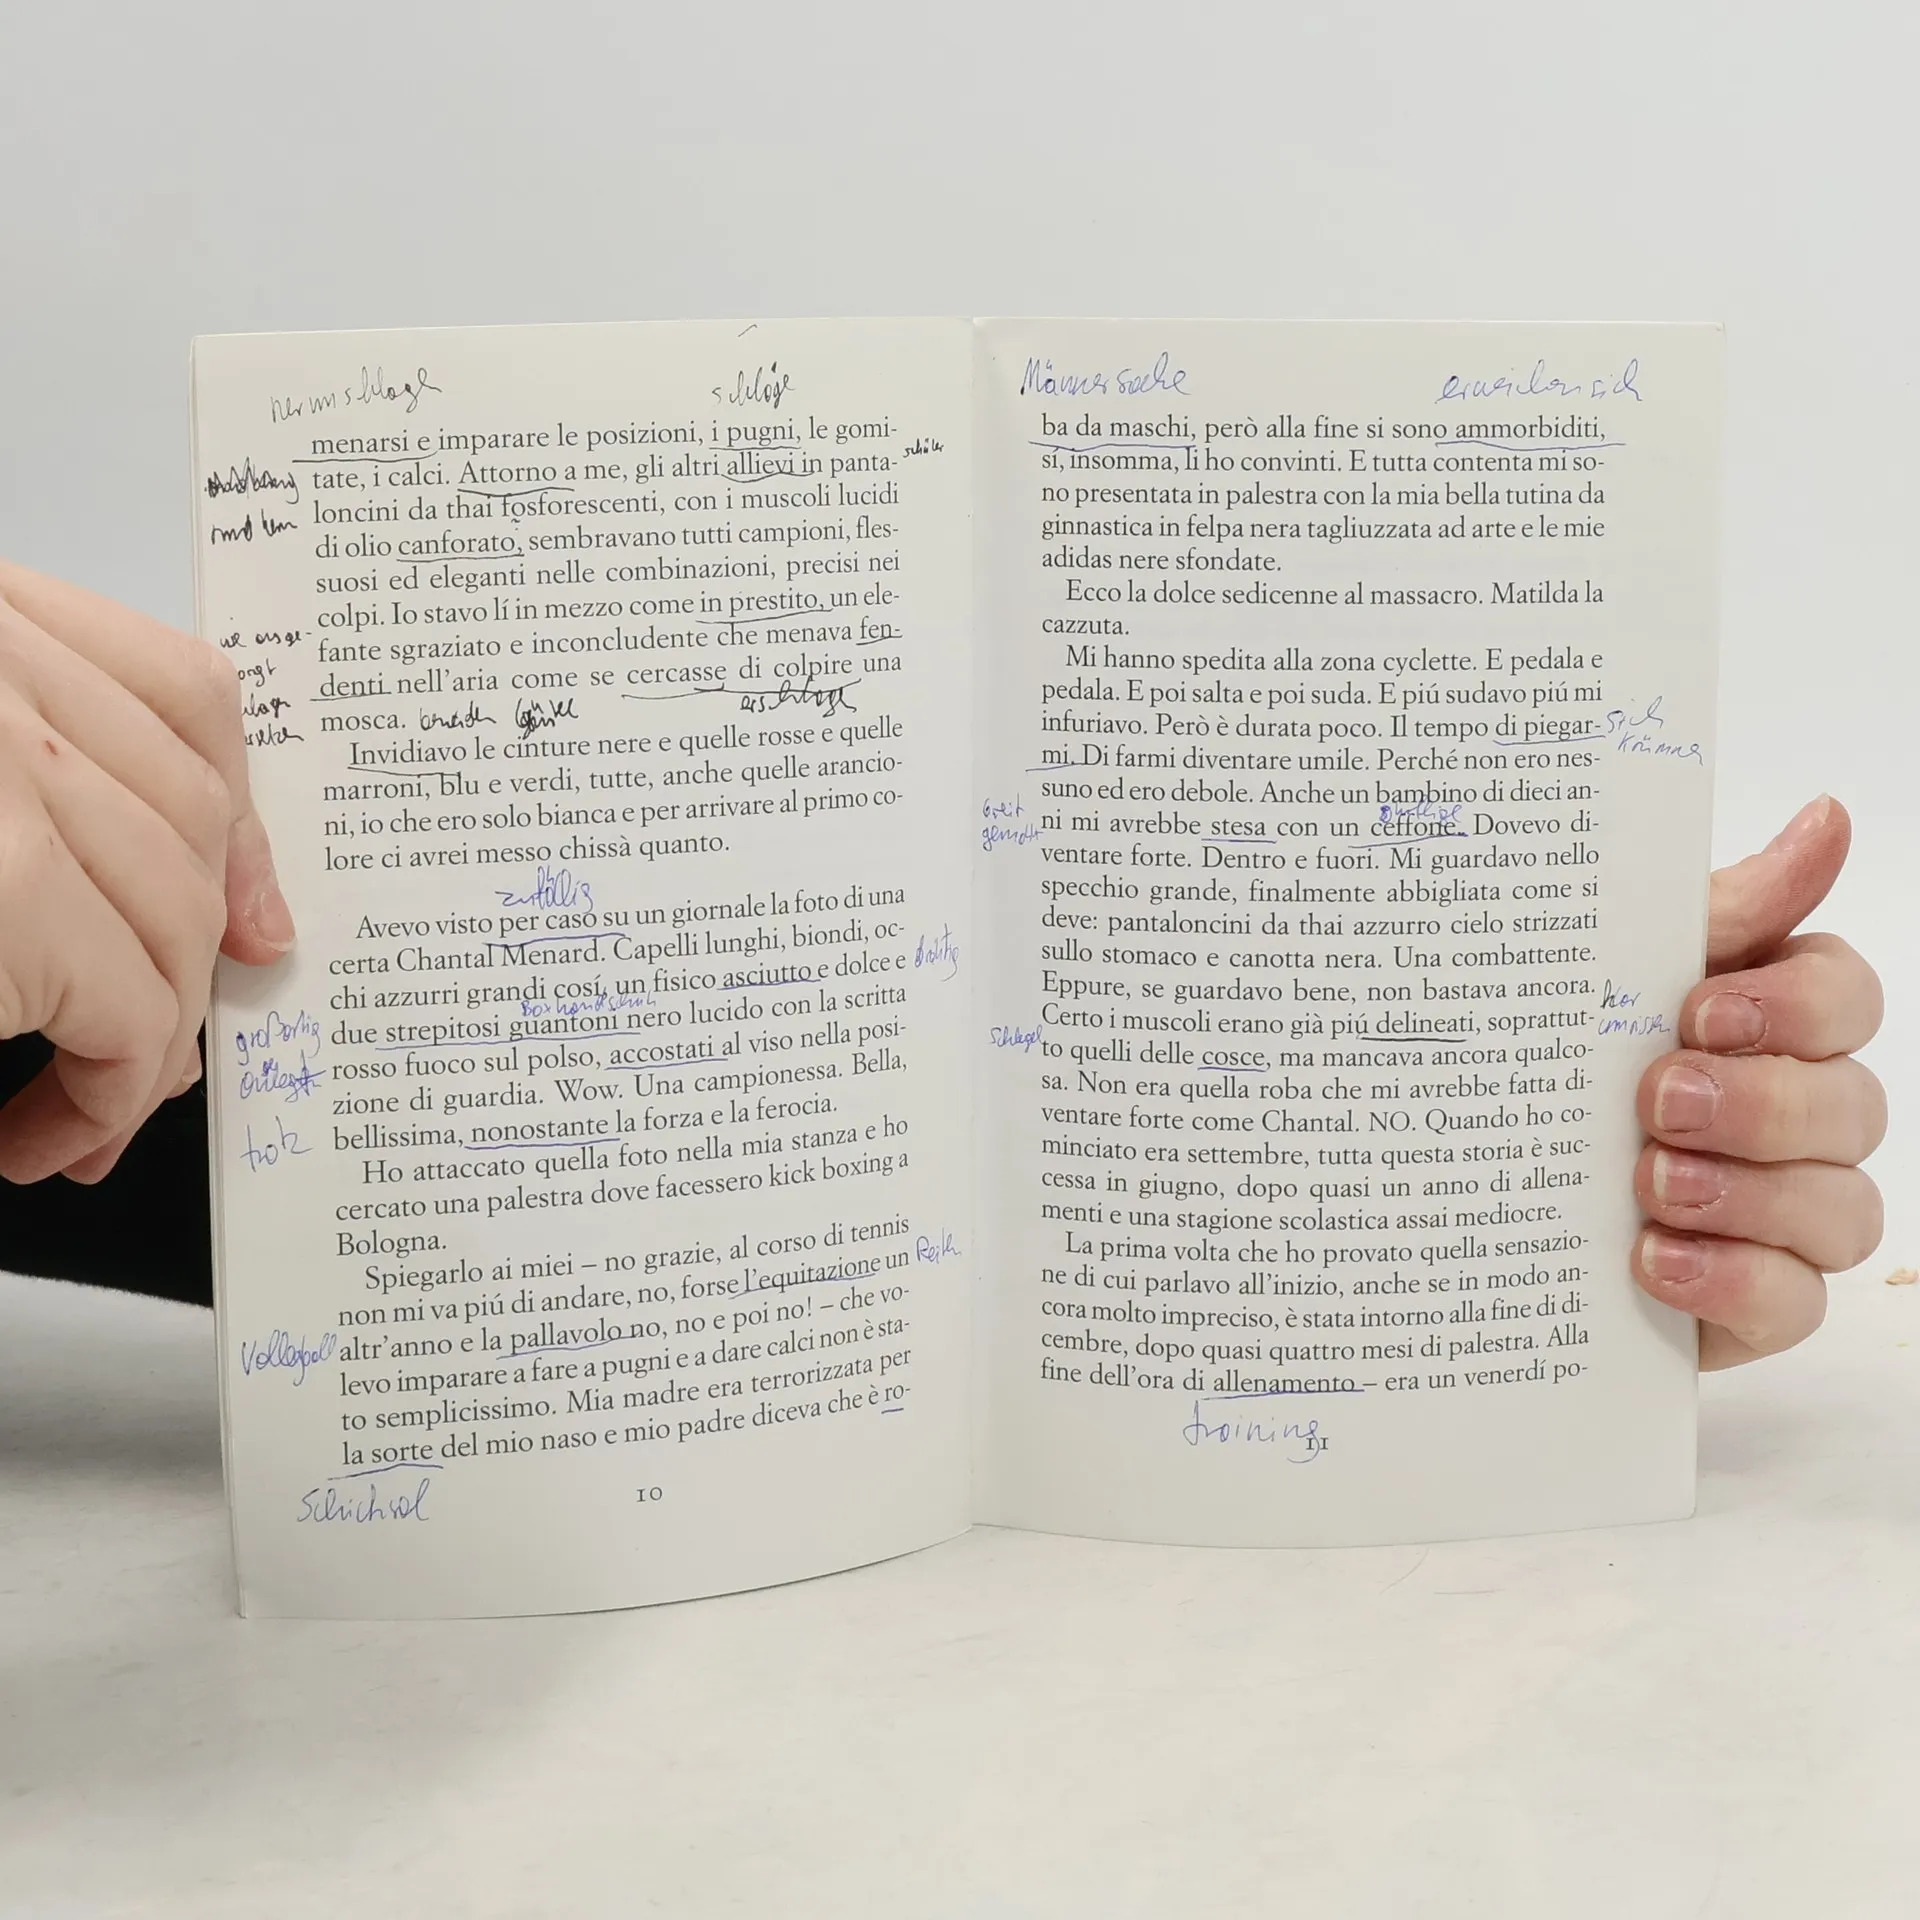 schläge
menarsi e imparare le posizioni, i pugni, le gomi-
schüler
tate, i calci. Attorno a me, gli altri allievi in panta-
loncini da thai fosforescenti, con i muscoli lucidi
di olio canforato, sembravano tutti campioni, fles-
suosi ed eleganti nelle combinazioni, precisi nei
colpi. Io stavo lí in mezzo come in prestito, un ele-
fante sgraziato e inconcludente che menava fen-
denti nell'aria come se cercasse di colpire una
mosca.
Invidiavo le cinture nere e quelle rosse e quelle
marroni, blu e verdi, tutte, anche quelle arancio-
ni, io che ero solo bianca e per arrivare al primo co-
lore ci avrei messo chissà quanto.
zufällig
Avevo visto per caso su un giornale la foto di una
certa Chantal Menard. Capelli lunghi, biondi, oc-
chi azzurri grandi cosí, un fisico asciutto e dolce e
Boxhandschuh
großartig
due strepitosi guantoni nero lucido con la scritta
rosso fuoco sul polso, accostati al viso nella posi-
zione di guardia. Wow. Una campionessa. Bella,
trotz
bellissima, nonostante la forza e la ferocia.
Ho attaccato quella foto nella mia stanza e ho
cercato una palestra dove facessero kick boxing a
Bologna.
Spiegarlo ai miei – no grazie, al corso di tennis
non mi va piú di andare, no, forse l'equitazione un
Reiten
Volleyball
altr'anno e la pallavolo no, no e poi no! – che vo-
levo imparare a fare a pugni e a dare calci non è sta-
to semplicissimo. Mia madre era terrorizzata per
la sorte del mio naso e mio padre diceva che è ro-
Schicksal
10
Männersache
erweichen sich
ba da maschi, però alla fine si sono ammorbiditi,
sí, insomma, li ho convinti. E tutta contenta mi so-
no presentata in palestra con la mia bella tutina da
ginnastica in felpa nera tagliuzzata ad arte e le mie
adidas nere sfondate.
Ecco la dolce sedicenne al massacro. Matilda la
cazzuta.
Mi hanno spedita alla zona cyclette. E pedala e
pedala. E poi salta e poi suda. E piú sudavo piú mi
infuriavo. Però è durata poco. Il tempo di piegar-
sich
krümmen
mi. Di farmi diventare umile. Perché non ero nes-
suno ed ero debole. Anche un bambino di dieci an-
ni mi avrebbe stesa con un ceffone. Dovevo di-
ventare forte. Dentro e fuori. Mi guardavo nello
specchio grande, finalmente abbigliata come si
deve: pantaloncini da thai azzurro cielo strizzati
sullo stomaco e canotta nera. Una combattente.
Eppure, se guardavo bene, non bastava ancora.
Certo i muscoli erano già piú delineati, soprattut-
Schlegel
to quelli delle cosce, ma mancava ancora qualco-
sa. Non era quella roba che mi avrebbe fatta di-
ventare forte come Chantal. NO. Quando ho co-
minciato era settembre, tutta questa storia è suc-
cessa in giugno, dopo quasi un anno di allena-
menti e una stagione scolastica assai mediocre.
La prima volta che ho provato quella sensazio-
ne di cui parlavo all'inizio, anche se in modo an-
cora molto impreciso, è stata intorno alla fine di di-
cembre, dopo quasi quattro mesi di palestra. Alla
fine dell'ora di allenamento – era un venerdí po-
training
11